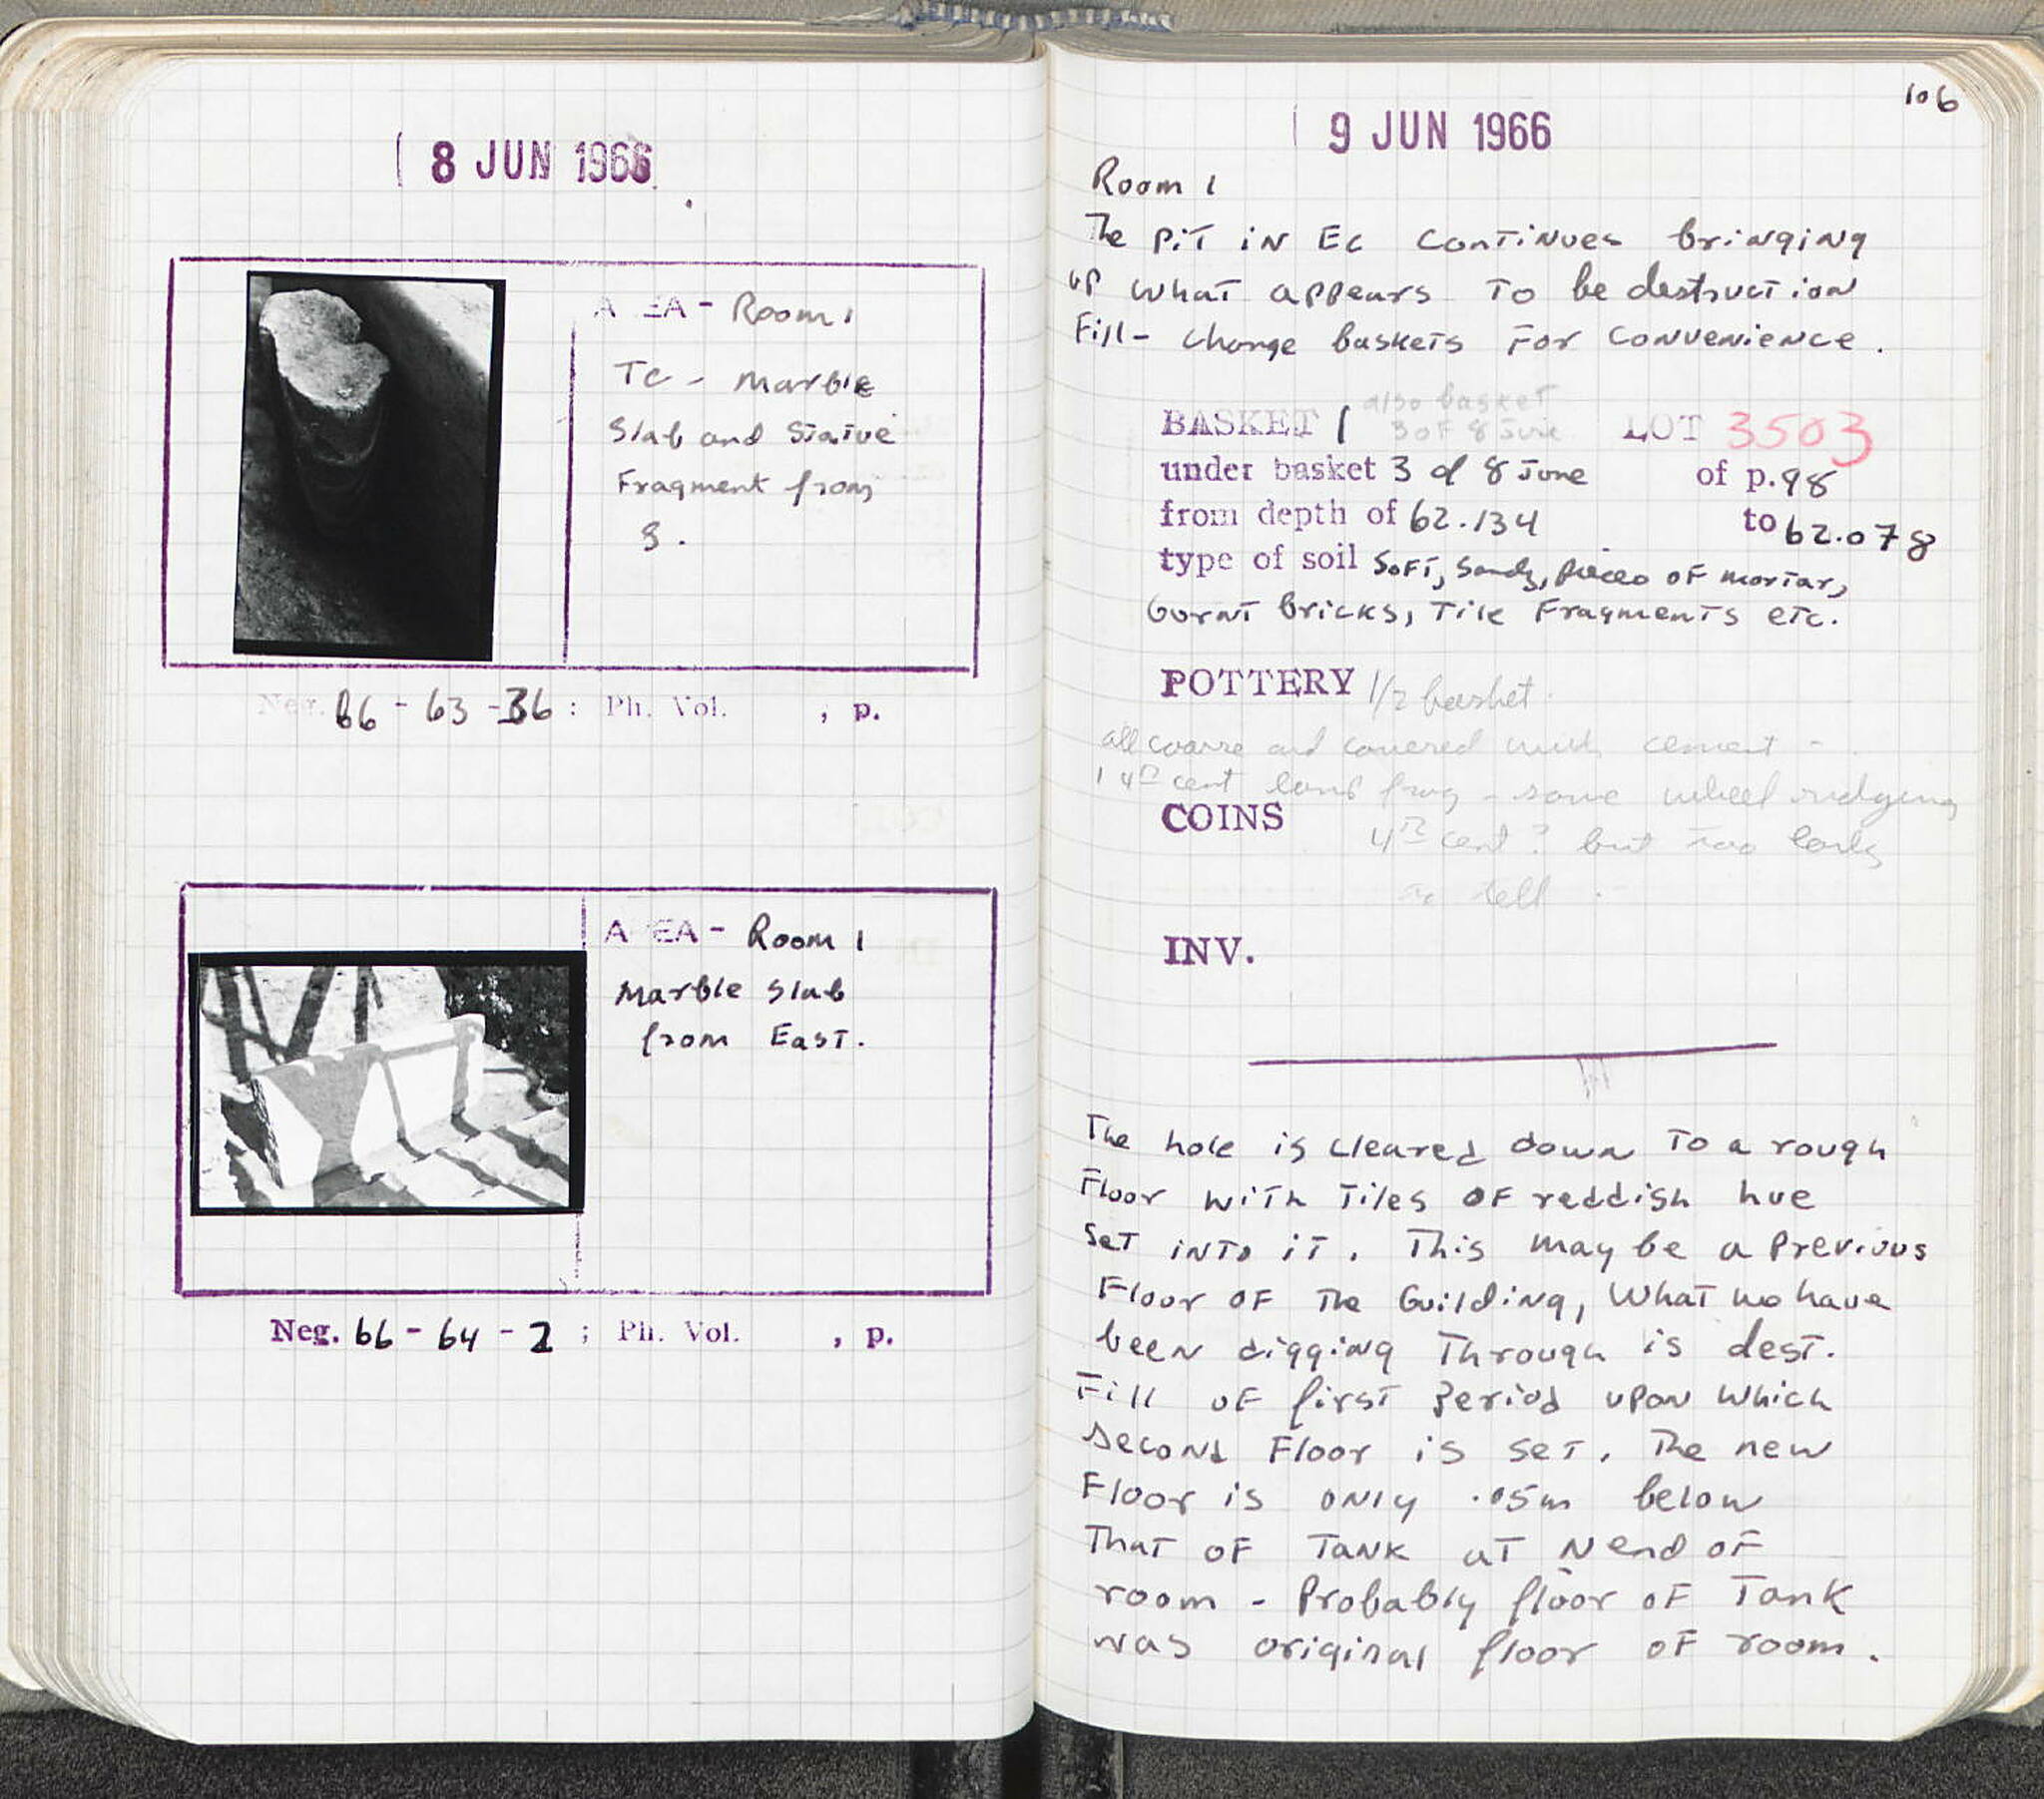 8 JUN 1966
A EA - Room 1
TC - Marble
Slab and Statue
Fragment from
S.
Neg. 66 - 63 - 36 : Ph. Vol. , p.
A EA - Room 1
Marble Slab
from East.
Neg. 66 - 64 - 2 ; Ph. Vol. , p.
106
9 JUN 1966
Room 1
The pit in Ec continues bringing
up what appears to be destruction
Fill - change baskets for convenience.
BASKET 1 also basket 3 of 8 June LOT 3503
under basket 3 of 8 June of p. 98
from depth of 62.134 to 62.078
type of soil Soft, sandy, pieces of mortar,
burnt bricks, Tile Fragments etc.
POTTERY 1/2 basket.
all coarse and covered with cement -
1 4th cent lamp frag - some wheel ridging
COINS
4th cent? but too early
to tell.
INV.
The hole is cleared down to a rough
Floor with tiles of reddish hue
Set into it. This may be a previous
Floor of the building, What we have
been digging through is dest.
Fill of first period upon which
second Floor is set. The new
Floor is only .05m below
That of Tank at N end of
room - Probably floor of Tank
was original floor of room.